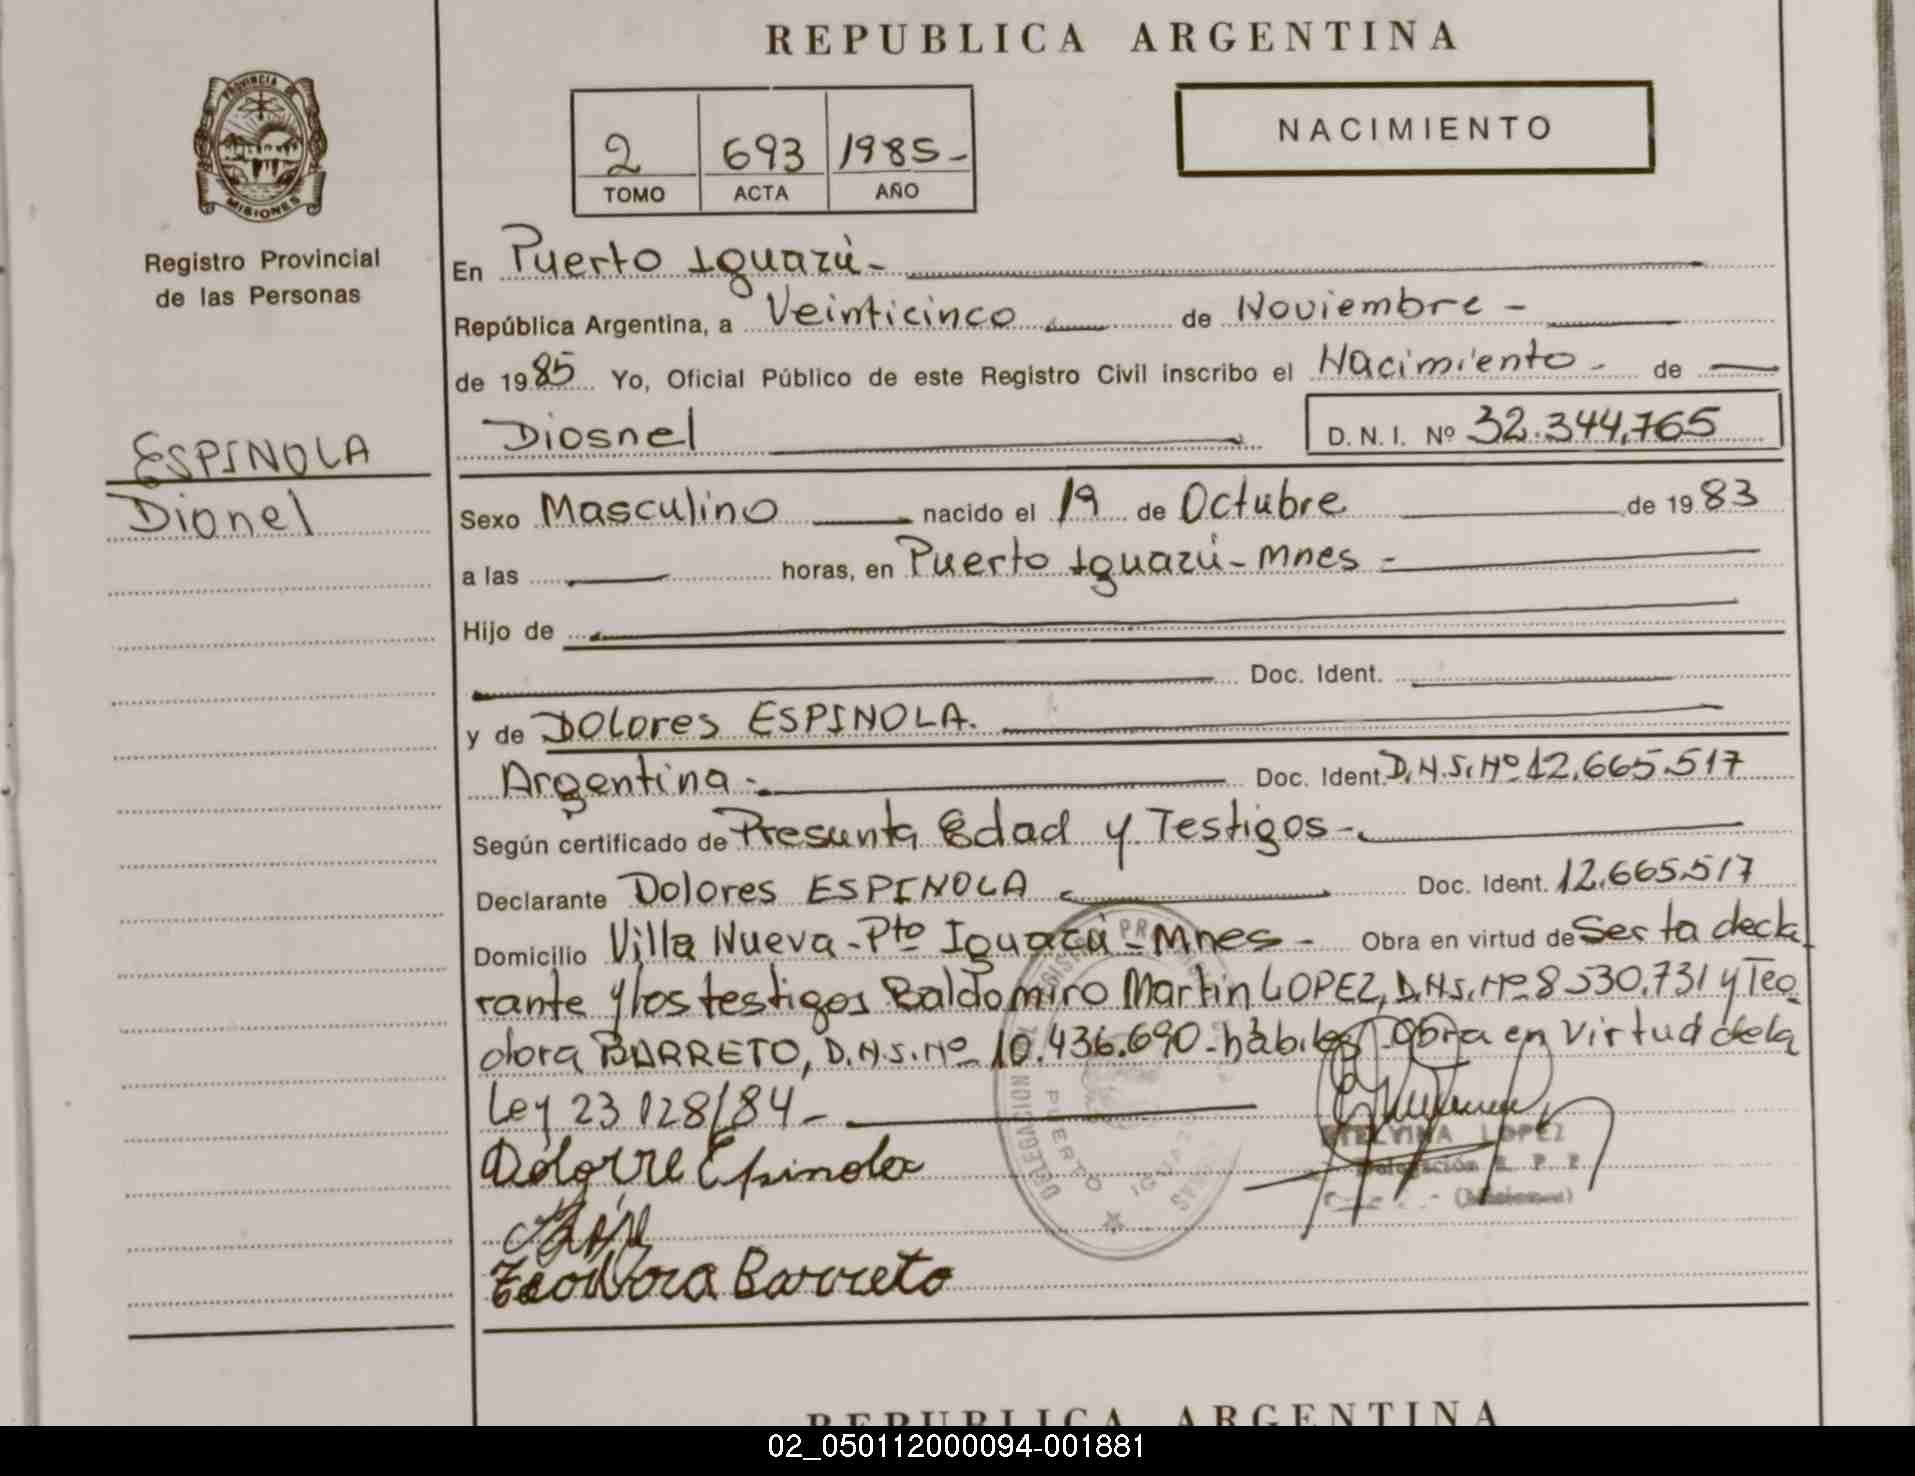 REPUBLICA ARGENTINA
PROVINCIA DE
MISIONES
Registro Provincial
de las Personas
2 693 1985-
TOMO ACTA AÑO
NACIMIENTO
En Puerto Iguazú-
República Argentina, a Veinticinco de Noviembre -
de 1985 Yo, Oficial Público de este Registro Civil inscribo el Nacimiento - de
Diosnel D. N. I. Nº 32.344.765
ESPINOLA
Dionel
Sexo Masculino nacido el 19 de Octubre de 1983
a las horas, en Puerto Iguazú-Mnes -
Hijo de
Doc. Ident.
y de DOLORES ESPINOLA.
Argentina - Doc. Ident. D.N.I.Nº 12.665.517
Según certificado de Presunta Edad y Testigos -
Declarante Dolores ESPINOLA Doc. Ident. 12.665.517
Domicilio Villa Nueva-Pto Iguazú-Mnes - Obra en virtud de Ser la decla
rante y los testigos Baldomiro Martin LOPEZ, D.N.I.Nº 8530.731 y Teo
dora BARRETO, D.N.I.Nº 10.436.690-hábiles-Obra en Virtud de la
Ley 23.128/84-
DELEGACION
PUERTO IGUAZU
Dolorre Espinola
ETELVINA LOPEZ
Delegación R. P. P.
(Misiones)
Teodora Barreto
REPUBLICA ARGENTINA
02_050112000094-001881